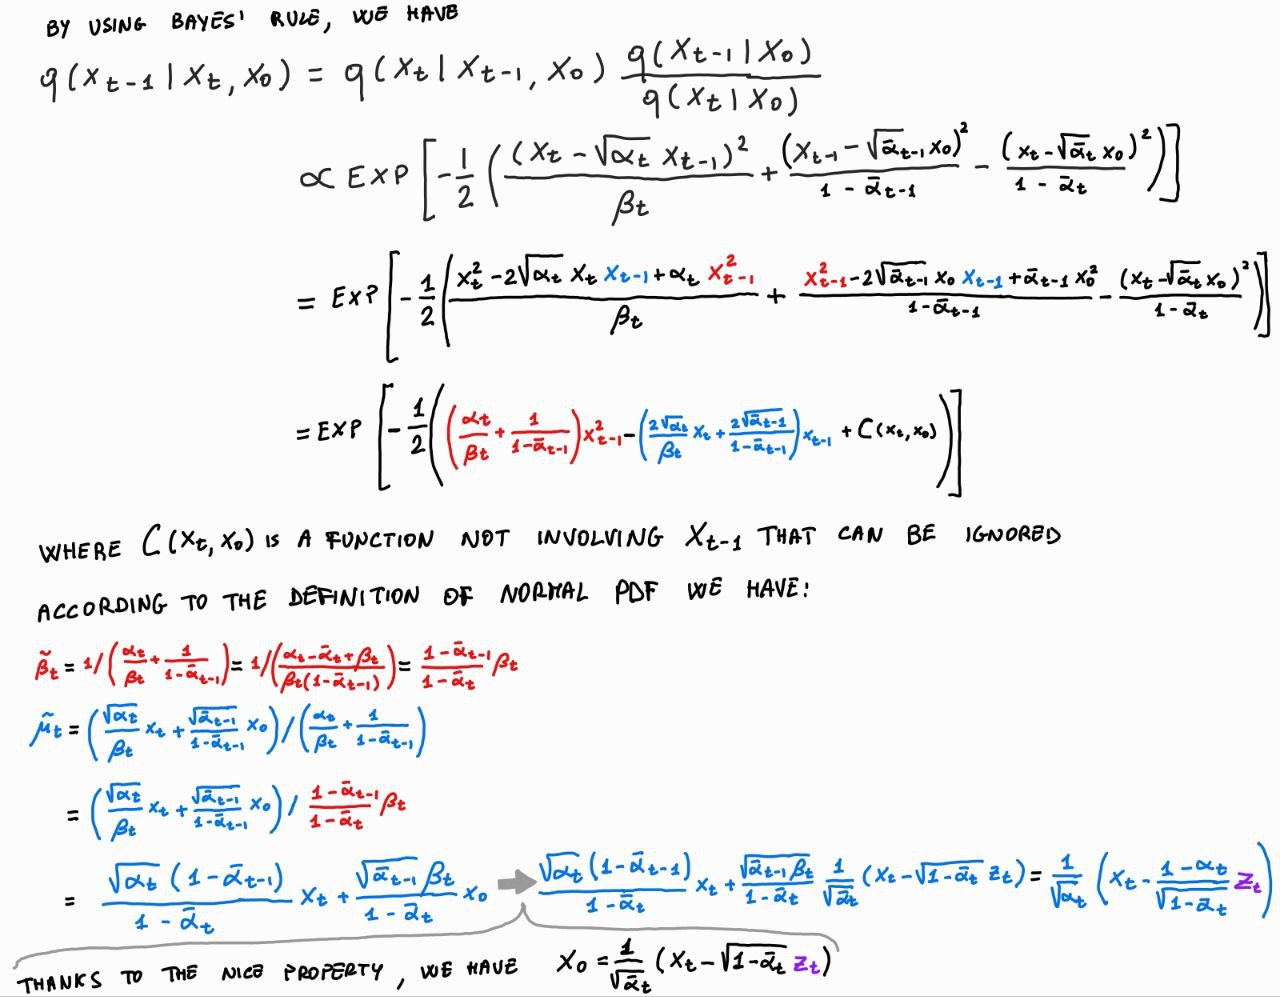 BY USING BAYES' RULE, WE HAVE
q(x_{t-1} | x_t, x_0) = q(x_t | x_{t-1}, x_0) \frac{q(x_{t-1} | x_0)}{q(x_t | x_0)}
∝ EXP [ -\frac{1}{2} ( \frac{(x_t - \sqrt{α_t} x_{t-1})^2}{β_t} + \frac{(x_{t-1} - \sqrt{\bar{α}_{t-1}} x_0)^2}{1 - \bar{α}_{t-1}} - \frac{(x_t - \sqrt{\bar{α}_t} x_0)^2}{1 - \bar{α}_t} ) ]
= EXP [ -\frac{1}{2} ( \frac{x_t^2 - 2\sqrt{α_t} x_t x_{t-1} + α_t x_{t-1}^2}{β_t} + \frac{x_{t-1}^2 - 2\sqrt{\bar{α}_{t-1}} x_0 x_{t-1} + \bar{α}_{t-1} x_0^2}{1 - \bar{α}_{t-1}} - \frac{(x_t - \sqrt{\bar{α}_t} x_0)^2}{1 - \bar{α}_t} ) ]
= EXP [ -\frac{1}{2} ( ( \frac{α_t}{β_t} + \frac{1}{1 - \bar{α}_{t-1}} ) x_{t-1}^2 - ( \frac{2\sqrt{α_t}}{β_t} x_t + \frac{2\sqrt{\bar{α}_{t-1}}}{1 - \bar{α}_{t-1}} ) x_{t-1} + C(x_t, x_0) ) ]
WHERE C(x_t, x_0) IS A FUNCTION NOT INVOLVING x_{t-1} THAT CAN BE IGNORED
ACCORDING TO THE DEFINITION OF NORMAL PDF WE HAVE:
\tilde{β}_t = 1/( \frac{α_t}{β_t} + \frac{1}{1 - \bar{α}_{t-1}} ) = 1/( \frac{α_t - \bar{α}_t + β_t}{β_t(1 - \bar{α}_{t-1})} ) = \frac{1 - \bar{α}_{t-1}}{1 - \bar{α}_t} β_t
\tilde{μ}_t = ( \frac{\sqrt{α_t}}{β_t} x_t + \frac{\sqrt{\bar{α}_{t-1}}}{1 - \bar{α}_{t-1}} x_0 ) / ( \frac{α_t}{β_t} + \frac{1}{1 - \bar{α}_{t-1}} )
= ( \frac{\sqrt{α_t}}{β_t} x_t + \frac{\sqrt{\bar{α}_{t-1}}}{1 - \bar{α}_{t-1}} x_0 ) / \frac{1 - \bar{α}_{t-1}}{1 - \bar{α}_t} β_t
= \frac{\sqrt{α_t} (1 - \bar{α}_{t-1})}{1 - \bar{α}_t} x_t + \frac{\sqrt{\bar{α}_{t-1}} β_t}{1 - \bar{α}_t} x_0 ➡ \frac{\sqrt{α_t} (1 - \bar{α}_{t-1})}{1 - \bar{α}_t} x_t + \frac{\sqrt{\bar{α}_{t-1}} β_t}{1 - \bar{α}_t} \frac{1}{\sqrt{\bar{α}_t}} (x_t - \sqrt{1 - \bar{α}_t} z_t) = \frac{1}{\sqrt{α_t}} ( x_t - \frac{1 - α_t}{\sqrt{1 - \bar{α}_t}} z_t )
THANKS TO THE NICE PROPERTY, WE HAVE x_0 = \frac{1}{\sqrt{\bar{α}_t}} (x_t - \sqrt{1 - \bar{α}_t} z_t)